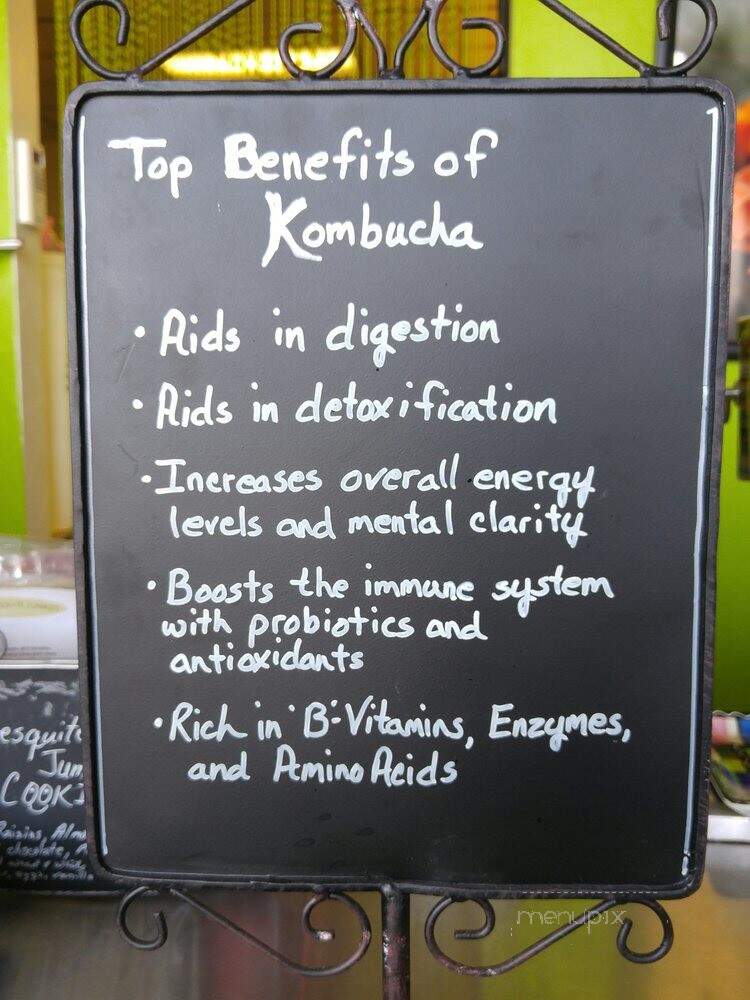 Top Benefits of
Kombucha
• Aids in digestion
• Aids in detoxification
• Increases overall energy
levels and mental clarity
• Boosts the immune system
with probiotics and
antioxidants
• Rich in "B"-Vitamins, Enzymes,
and Amino Acids
esquite
Jum
COOKI
Raisins, Alm
chocolate, A
vanilla
menupix